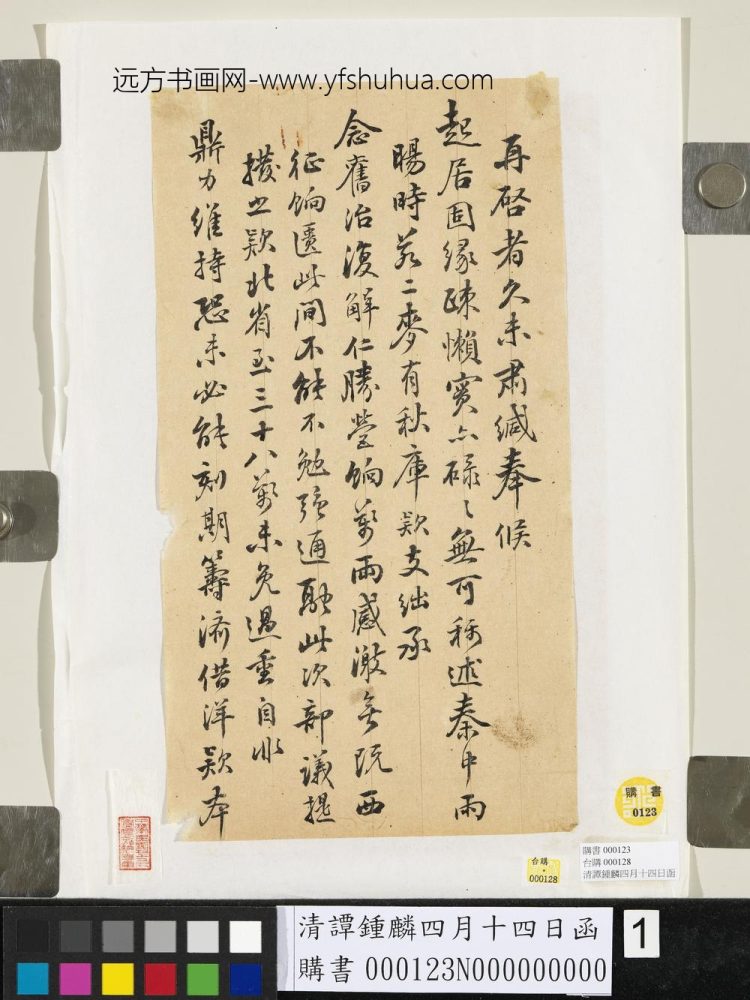 远方书画网-www.yfshuhua.com
再啓者久未肅緘奉候
起居固緣疎懶實亦碌〻無可稱述秦中雨
暘時若二麥有秋庫欵支絀承
念舊治復解仁勝營餉萬兩感激無既西
征餉匱此間不能不勉強通融此次部議提
撥之欵北省至三十八萬未免過重自非
鼎力維持恐未必能刻期籌濟借洋欵本
購書
0123
台購
000128
購書 000123
台購 000128
清譚鍾麟四月十四日函
清譚鍾麟四月十四日函
購書 000123N000000000
1